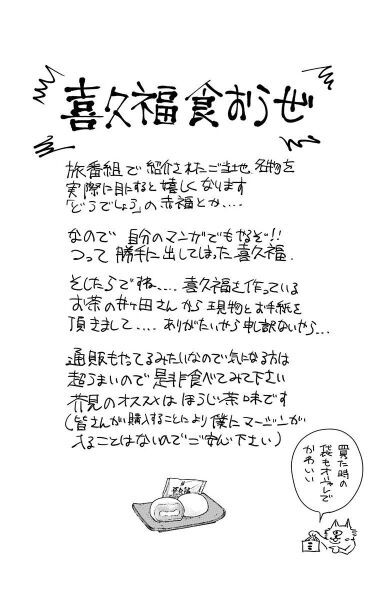 喜久福食おうぜ
旅番組で紹介されたご当地名物を
実際に目にすると嬉しくなります
「どうでしょう」の赤福とか....
なので 自分のマンガでもやるぞ!!
つって 勝手に出してしまった喜久福.
そしたらですね.... 喜久福を作っている
お茶の井ヶ田さんから現物とお手紙を
頂きまして.... ありがたいやら申し訳ないやら...
通販もやってるみたいなので気になる方は
超うまいので是非食べてみて下さい
芥見のオススメはほうじ茶味です
(皆さんが購入することにより僕にマージンが
入ることはないのでご安心下さい)
買った時の
袋もオシャレで
かわいい